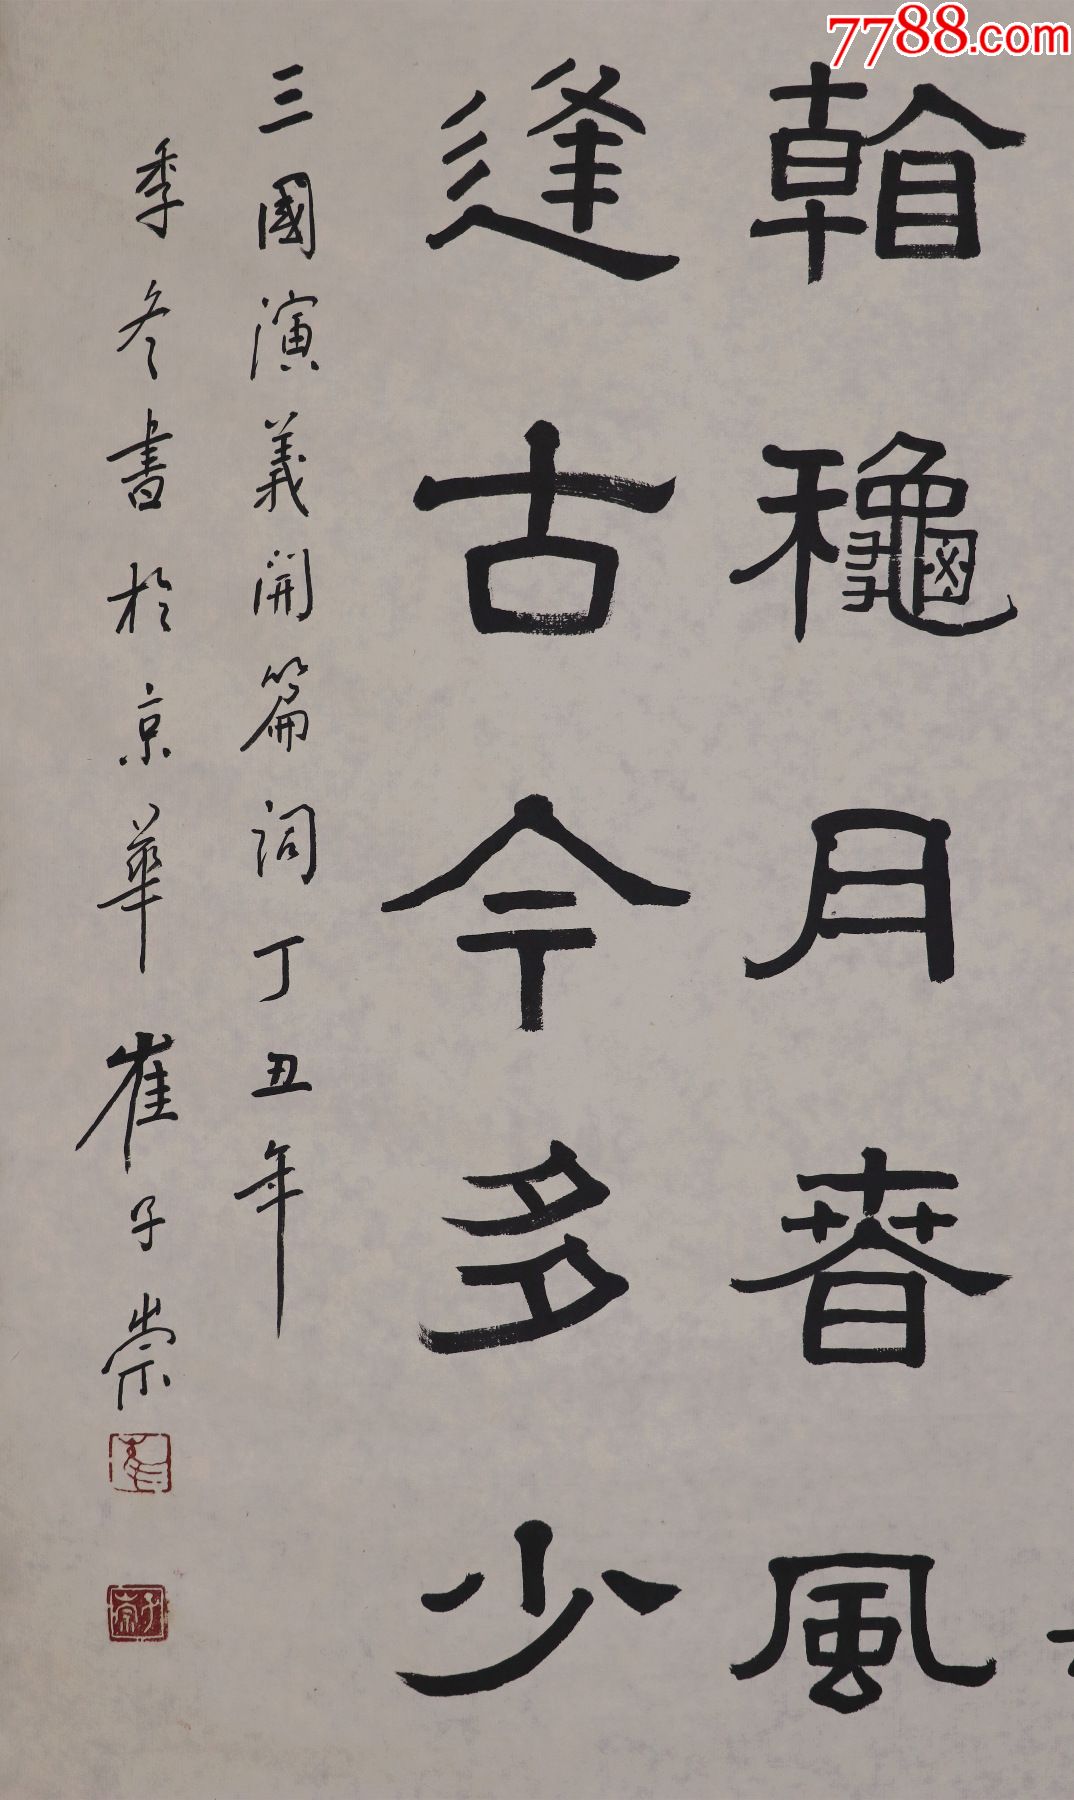 7788.com
看龝月春風
逢古今多少
三國演義開篇詞丁丑年
季冬書於京華崔子崇
崔
子崇